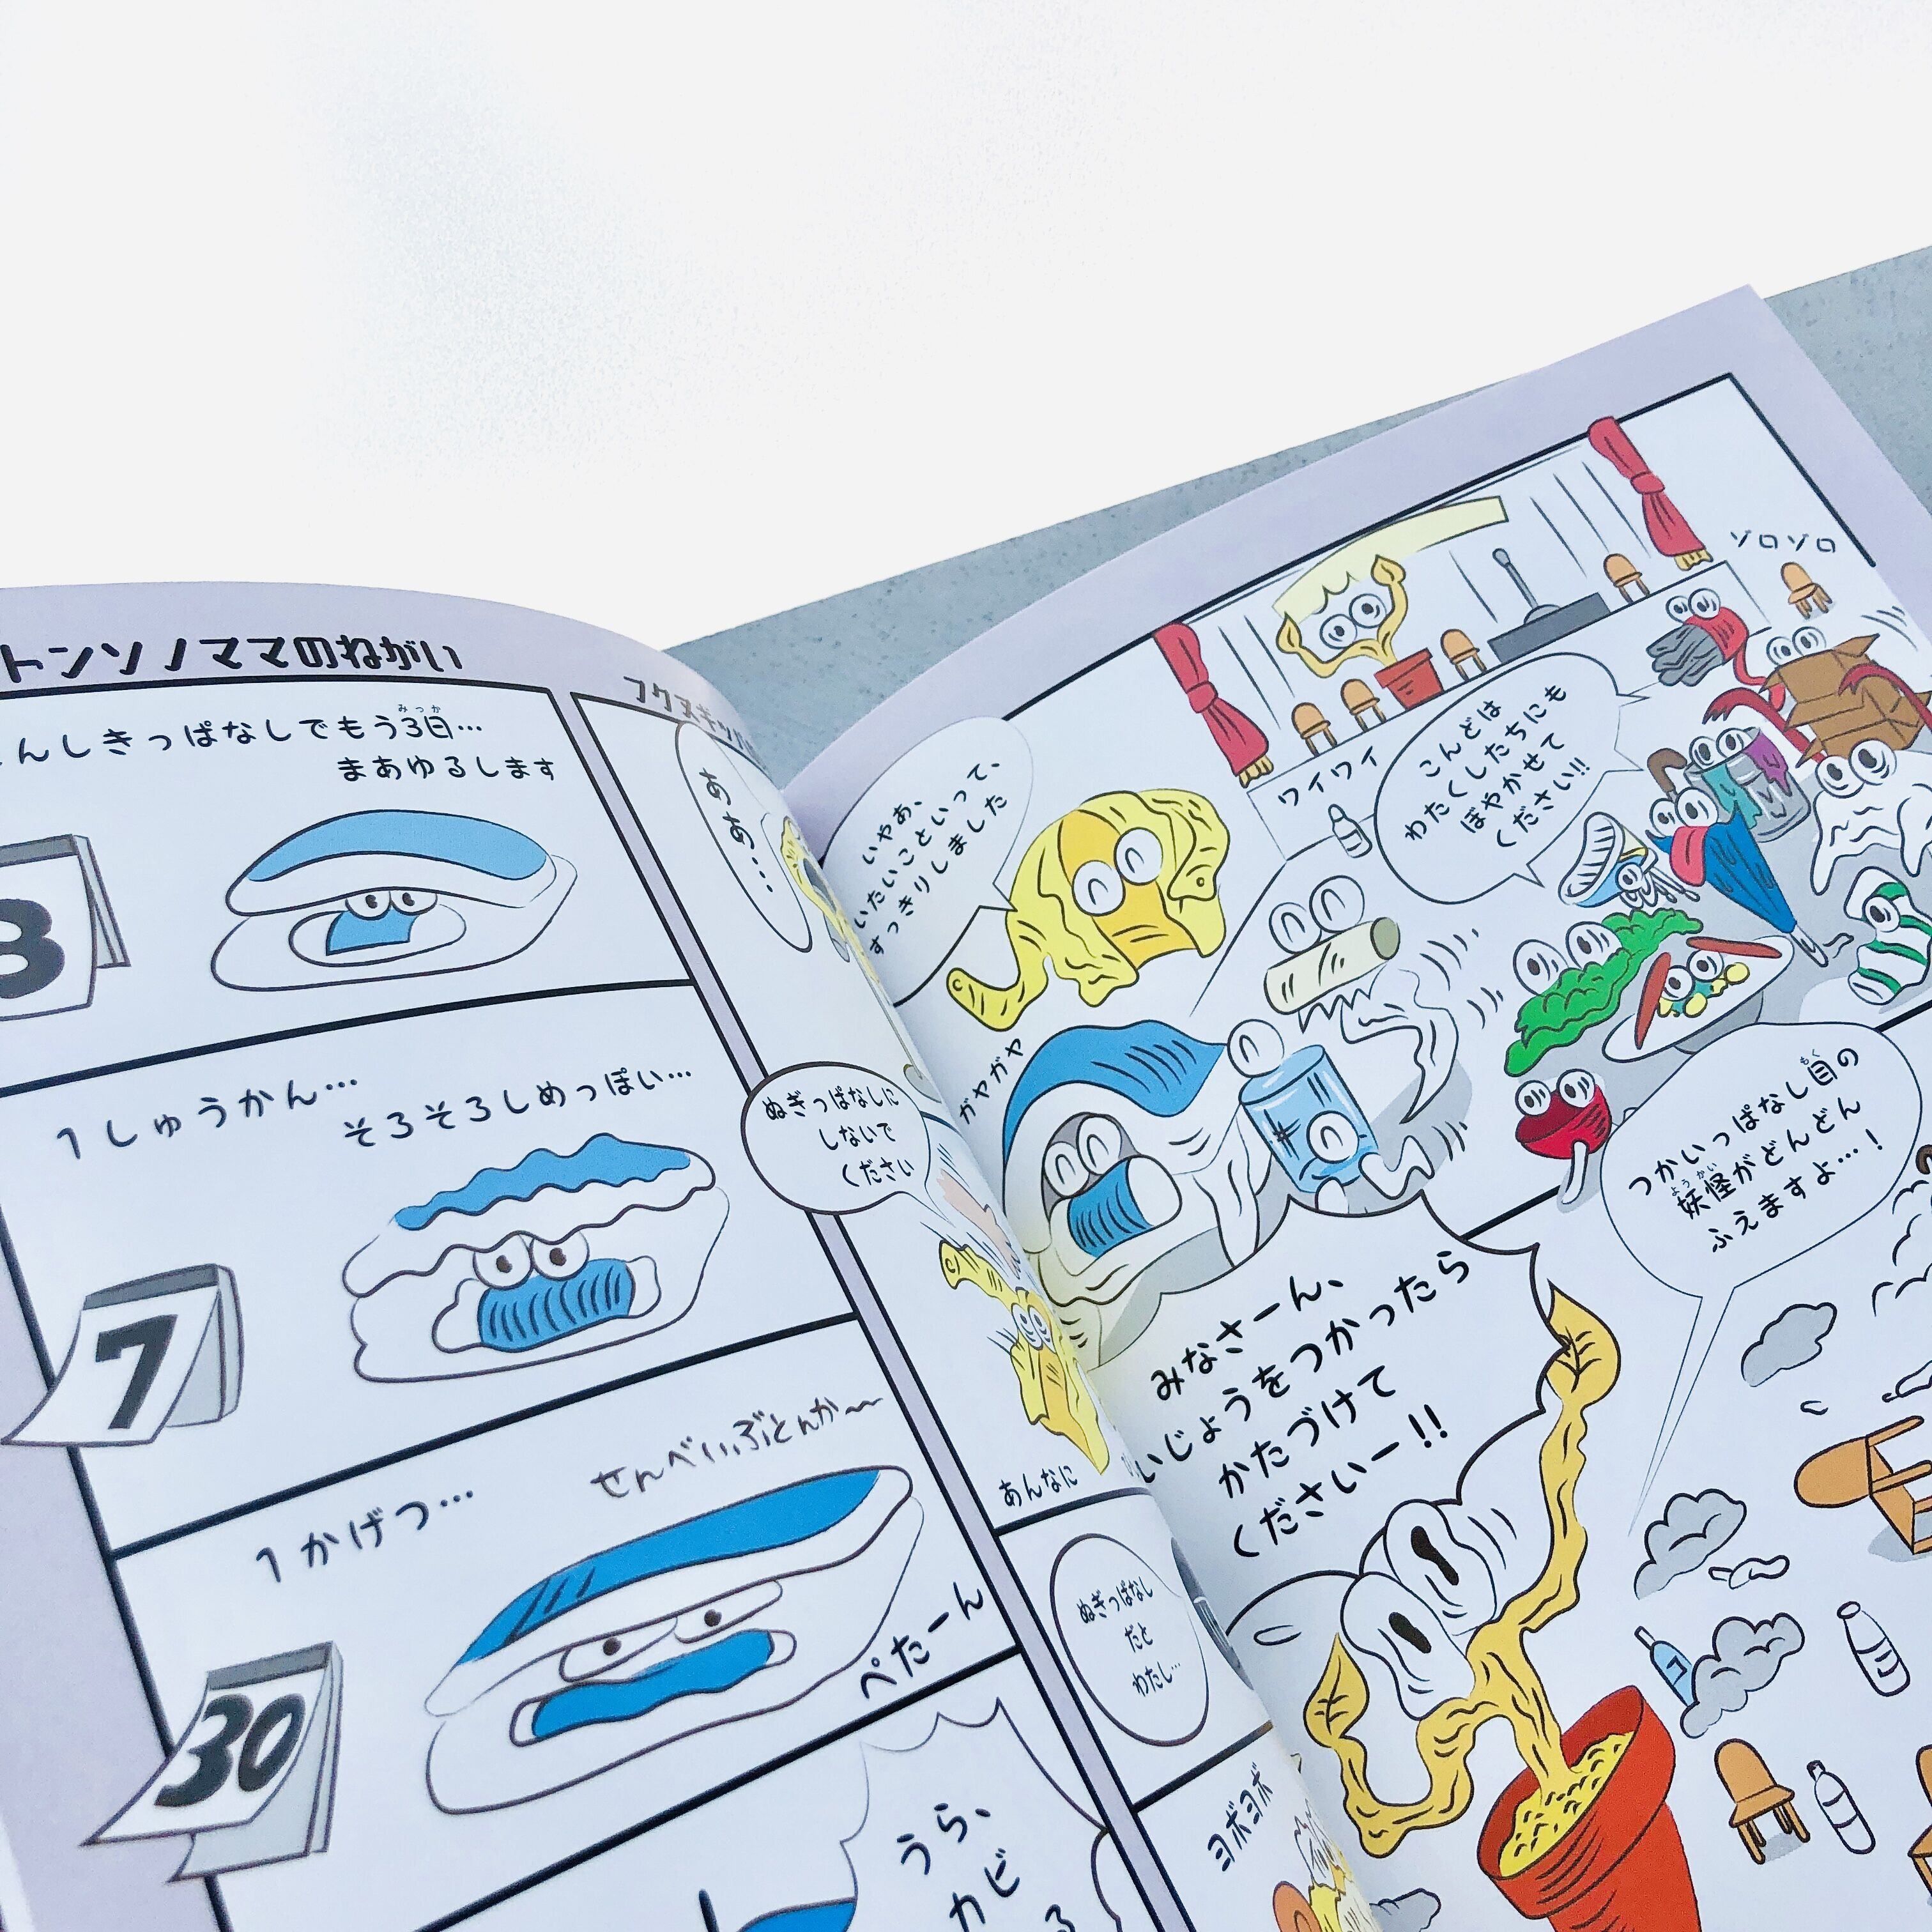 トンソノママのねがい
んしきっぱなしでもう3日…
みっか
まあゆるします
3
1しゅうかん…
そろそろしめっぽい…
7
1かげつ…
せんべいぶとんか〜
ぺたーん
30
うら、
カビ
フクヌギッパ
ああ…
ぬぎっぱなしに
しないで
ください
あんなに
ぬぎっぱなし
だと
わたし…
ヨボヨボ
ゾロゾロ
いやあ、
いたいこといって、
すっきりしました
ワイワイ
こんどは
わたくしたちにも
ぼやかせて
ください!!
ガヤガヤ
つかいっぱなし目の
もく
妖怪がどんどん
ようかい
ふえますよ…!
みなさーん、
いじょうをつかったら
かたづけて
くださいー!!